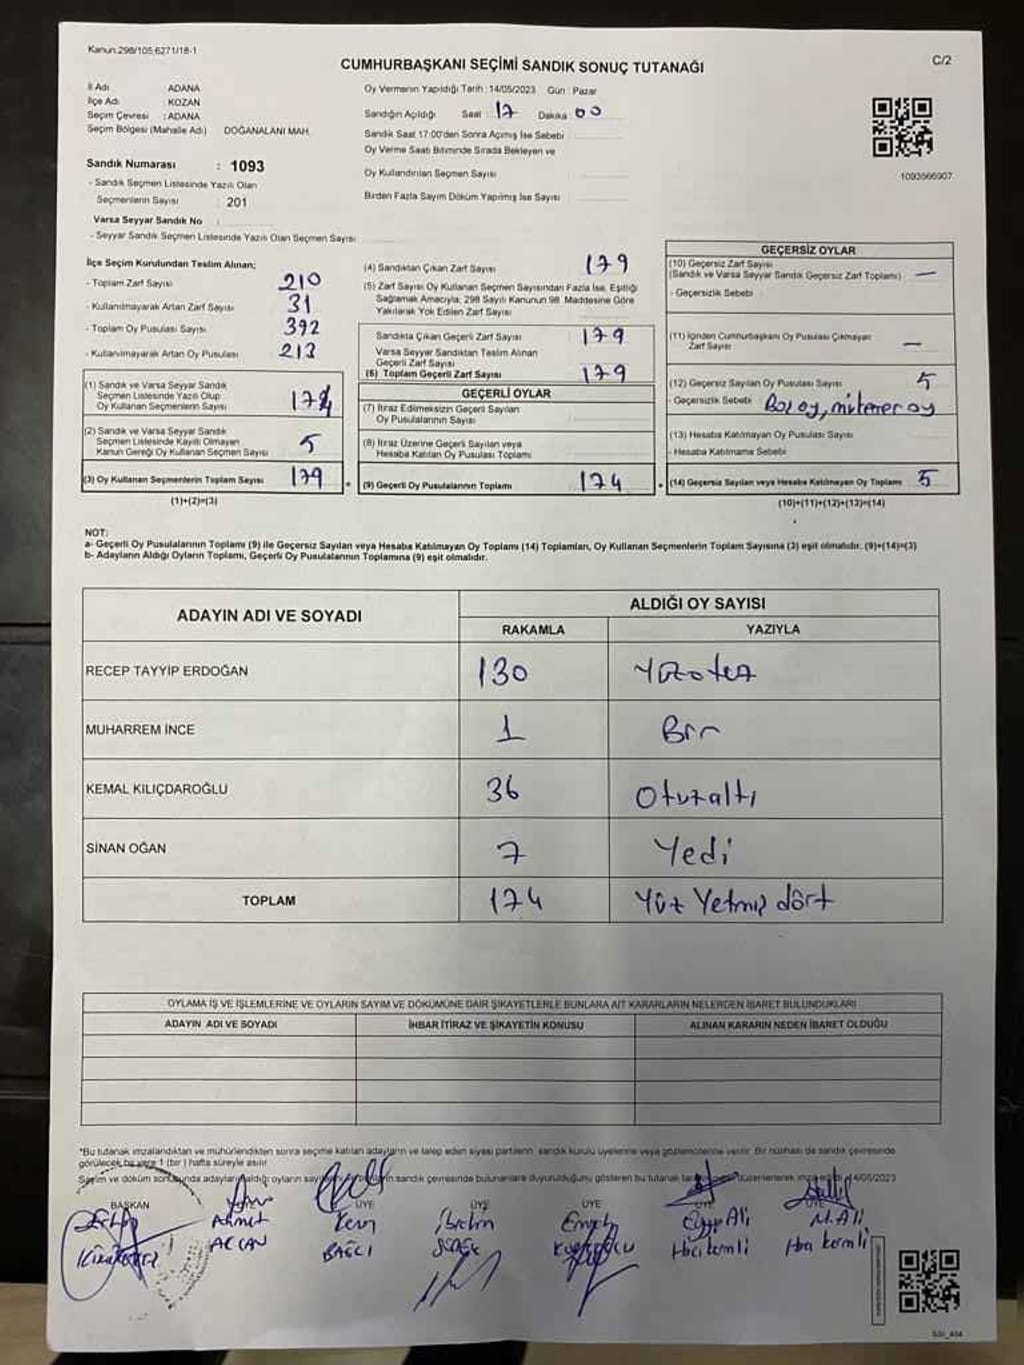 Kanun.298/105,6271/18-1
C/2
CUMHURBAŞKANI SEÇİMİ SANDIK SONUÇ TUTANAĞI
İl Adı ADANA
İlçe Adı : KOZAN
Seçim Çevresi : ADANA
Seçim Bölgesi (Mahalle Adı) DOĞANALANI MAH.
Sandık Numarası : 1093
- Sandık Seçmen Listesinde Yazılı Olan
Seçmenlerin Sayısı : 201
Varsa Seyyar Sandık No :
- Seyyar Sandık Seçmen Listesinde Yazılı Olan Seçmen Sayısı
Oy Vermenin Yapıldığı Tarih : 14/05/2023 Gün : Pazar
Sandığın Açıldığı Saat : 17 Dakika : 00
Sandık Saat 17:00'den Sonra Açılmış İse Sebebi
Oy Verme Saati Bitiminde Sırada Bekleyen ve
Oy Kullandırılan Seçmen Sayısı
Birden Fazla Sayım Döküm Yapılmış İse Sayısı
1093566907
İlçe Seçim Kurulundan Teslim Alınan;
- Toplam Zarf Sayısı 210
- Kullanılmayarak Artan Zarf Sayısı 31
- Toplam Oy Pusulası Sayısı 392
- Kullanılmayarak Artan Oy Pusulası 213
(1) Sandık ve Varsa Seyyar Sandık
Seçmen Listesinde Yazılı Olup
Oy Kullanan Seçmenlerin Sayısı 174
(2) Sandık ve Varsa Seyyar Sandık
Seçmen Listesinde Kayıtlı Olmayan
Kanun Gereği Oy Kullanan Seçmen Sayısı 5
(3) Oy Kullanan Seçmenlerin Toplam Sayısı 179
(1)+(2)=(3)
(4) Sandıktan Çıkan Zarf Sayısı 179
(5) Zarf Sayısı Oy Kullanan Seçmen Sayısından Fazla İse, Eşitliği
Sağlamak Amacıyla; 298 Sayılı Kanunun 98. Maddesine Göre
Yakılarak Yok Edilen Zarf Sayısı
Sandıkta Çıkan Geçerli Zarf Sayısı 179
Varsa Seyyar Sandıktan Teslim Alınan
Geçerli Zarf Sayısı
(6) Toplam Geçerli Zarf Sayısı 179
GEÇERLİ OYLAR
(7) İtiraz Edilmeksizin Geçerli Sayılan
Oy Pusulalarının Sayısı
(8) İtiraz Üzerine Geçerli Sayılan veya
Hesaba Katılan Oy Pusulası Toplamı
(9) Geçerli Oy Pusulalarının Toplamı 174
GEÇERSİZ OYLAR
(10) Geçersiz Zarf Sayısı
(Sandık ve Varsa Seyyar Sandık Geçersiz Zarf Toplamı) —
- Geçersizlik Sebebi :
(11) İçinden Cumhurbaşkanı Oy Pusulası Çıkmayan
Zarf Sayısı —
(12) Geçersiz Sayılan Oy Pusulası Sayısı 5
- Geçersizlik Sebebi Boş oy,
(13) Hesaba Katılmayan Oy Pusulası Sayısı
- Hesaba Katılmama Sebebi
(14) Geçersiz Sayılan veya Hesaba Katılmayan Oy Toplamı 5
(10)+(11)+(12)+(13)=(14)
NOT:
a- Geçerli Oy Pusulalarının Toplamı (9) ile Geçersiz Sayılan veya Hesaba Katılmayan Oy Toplamı (14) Toplamları, Oy Kullanan Seçmenlerin Toplam Sayısına (3) eşit olmalıdır. (9)+(14)=(3)
b- Adayların Aldığı Oyların Toplamı, Geçerli Oy Pusulalarının Toplamına (9) eşit olmalıdır.
ADAYIN ADI VE SOYADI ALDIĞI OY SAYISI
RAKAMLA YAZIYLA
RECEP TAYYİP ERDOĞAN 130 Yüzotuz
MUHARREM İNCE 1 Bir
KEMAL KILIÇDAROĞLU 36 Otuzaltı
SİNAN OĞAN 7 Yedi
TOPLAM 174 Yüz Yetmiş dört
OYLAMA İŞ VE İŞLEMLERİNE VE OYLARIN SAYIM VE DÖKÜMÜNE DAİR ŞİKAYETLERLE BUNLARA AİT KARARLARIN NELERDEN İBARET BULUNDUKLARI
ADAYIN ADI VE SOYADI İHBAR İTİRAZ VE ŞİKAYETİN KONUSU ALINAN KARARIN NEDEN İBARET OLDUĞU
*Bu tutanak imzalandıktan ve mühürlendikten sonra seçime katılan adayların ve talep eden siyasi partilerin, sandık kurulu üyelerine veya gözlemcilerine verilir. Bir nüshası de sandık çevresinde
görülecek bir yere 1 (bir ) hafta süreyle asılır
Sayım ve döküm sonucunda adayların aldığı oyların sandık çevresinde bulunanlara duyurulduğunu gösteren bu tutanak
BAŞKAN ÜYE ÜYE ÜYE
Ahmet İbrahim Engin Eyyp Ali M. Ali
ARCAN BAĞCI Hacıkemli Hacı kemli